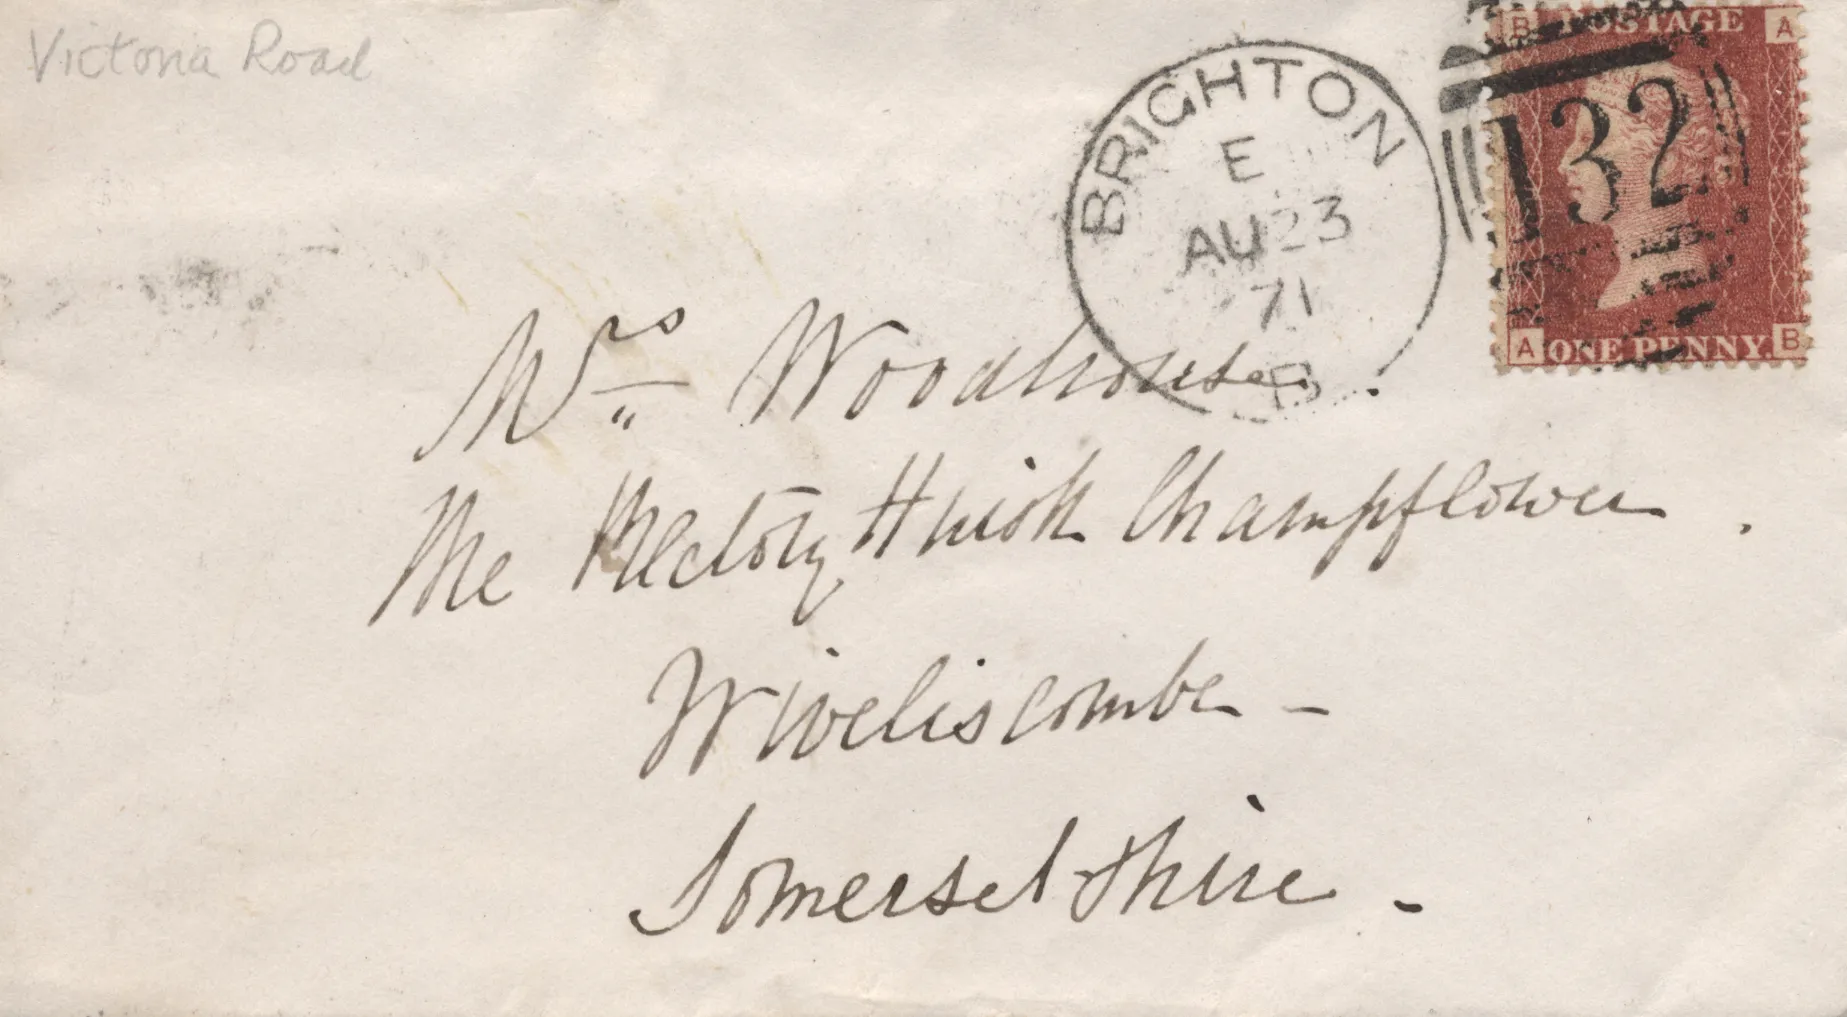 Victoria Road
B POSTAGE A
132
A ONE PENNY. B
BRIGHTON
E
AU 23
71
B
Mrs Woodhouse.
The Rectory, Huish Champflower.
Wiveliscombe -
Somersetshire -